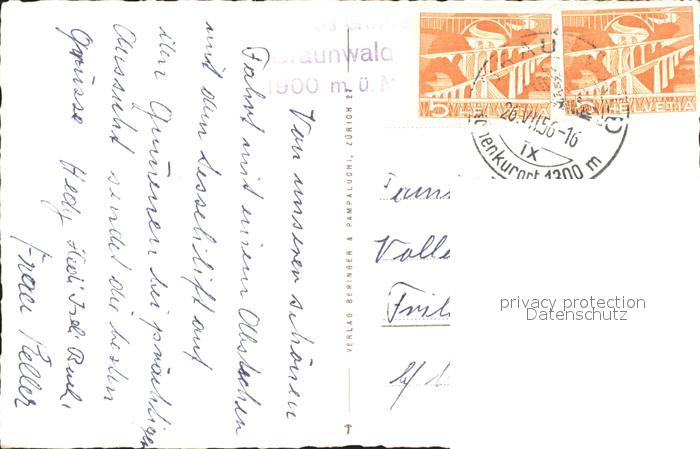 Braunwald
1900 m ü. M
5 HELVETIA
5 HELVETIA
26.VII.56-16
IX
Höhenkurort 1300 m
Von unserer schönen
Fahrt mit einem Abstecher
mit dem Sessellift auf
den Gumenen bei prächtiger
Aussicht sendet die besten
Grüsse Hedy
Frau Keller
VERLAG BERINGER & PAMPALUCHI, ZÜRICH 2
Fami
Volle
privacy protection
Datenschutz